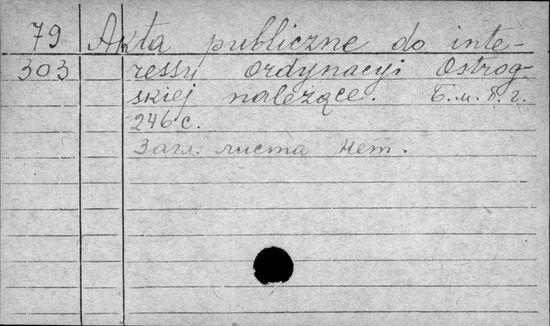 79 Akta publiczne do inte-
303 ressu ordynacyi Ostrog-
skiej należące. Б.м. б. г.
246 с.
Загл. листа нет.